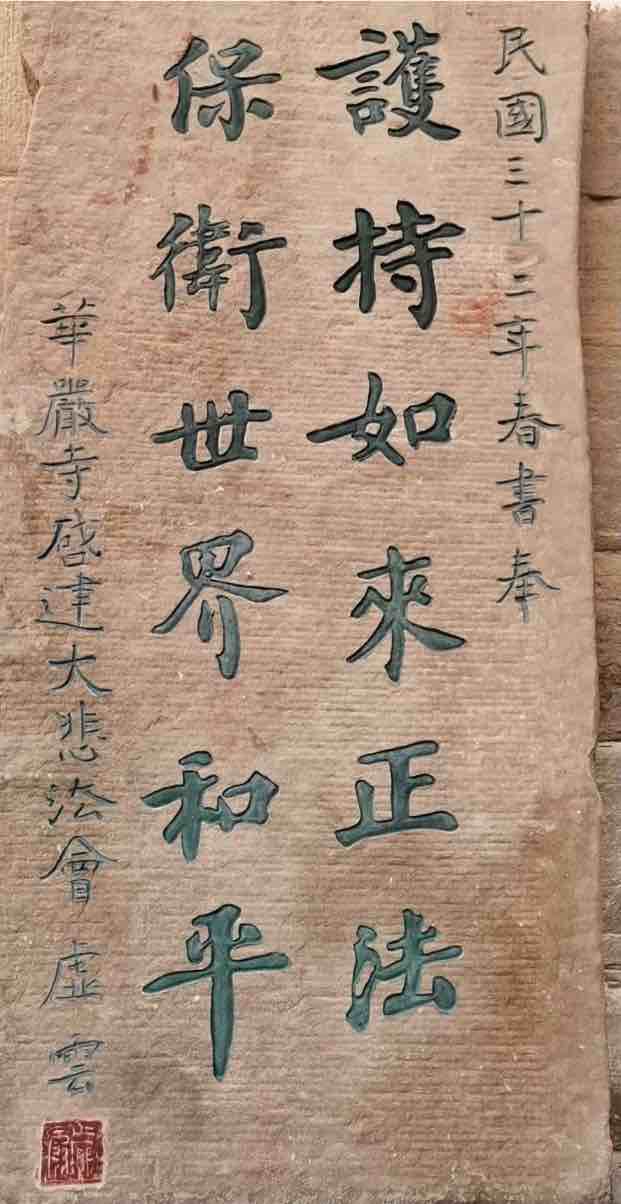 民國三十二年春書奉
護持如來正法
保衛世界和平
華嚴寺啓建大悲法會 虛雲